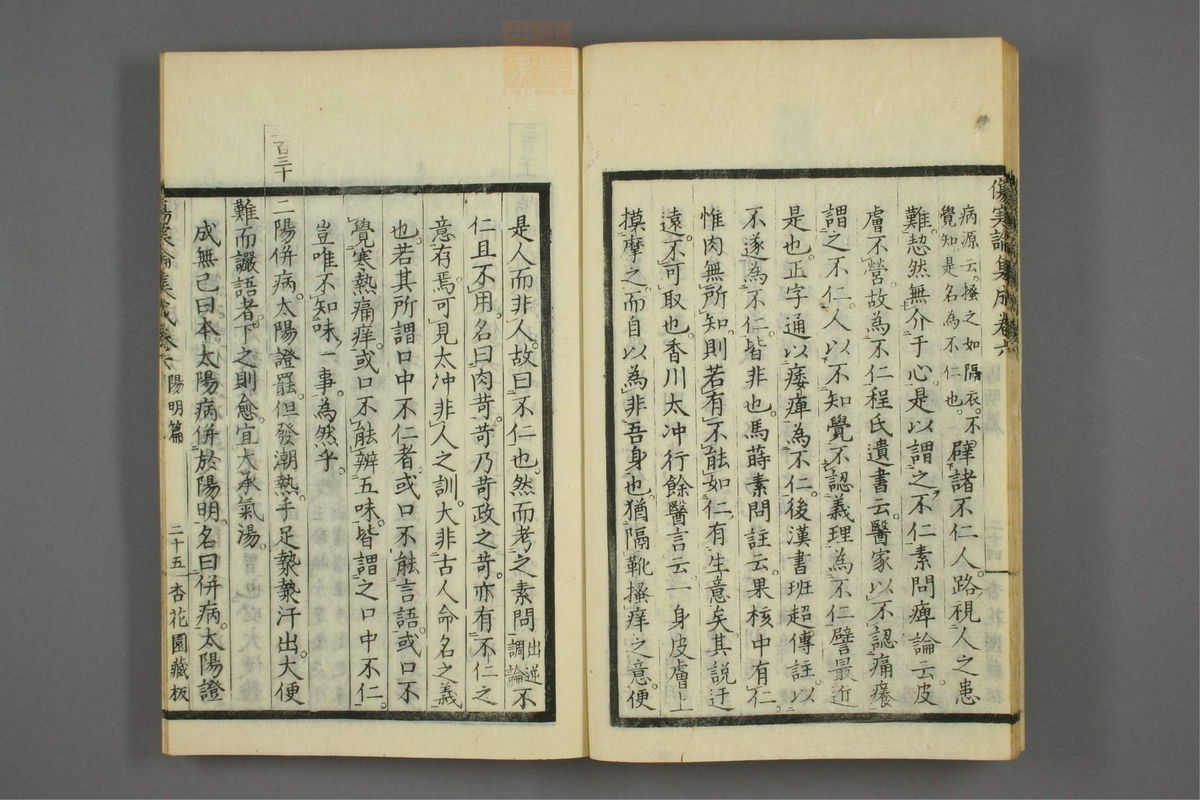 傷寒論集成卷六
病源云。搔之如隔衣。不
覺知是名為不仁也。
譬諸不仁人。路視人之患
難。恝然無介于心。是以謂之不仁。素問痺論云。皮
膚不營。故為不仁。程氏遺書云。醫家以不認痛癢
謂之不仁。人以不知覺不認義理為不仁。譬最近
是也。正字通以痿痺為不仁。後漢書班超傳註。以
不遂為不仁。皆非也。馬蒔素問註云。果核中有仁。
惟肉無所知。則若有不能如仁有生意矣。其說迂
遠。不可取也。香川太冲行餘醫言云。一身皮膚上
摸摩之。而自以為非吾身也。猶隔靴搔痒之意。便
是人而非人。故曰不仁也。然而考之素問
出逆
調論
不
仁且不用。名曰肉苛。苛乃苛政之苛。亦有不仁之
意有焉。可見太冲非人之訓。大非古人命名之義
也。若其所謂口中不仁者。或口不能言語。或口不
覺寒熱痛痒。或口不能辨五味。皆謂之口中不仁。
豈唯不知味。一事為然乎。
二百三十
二陽併病。太陽證罷。但發潮熱。手足漐漐汗出。大便
難而讝語者。下之則愈。宜大承氣湯。
成無己曰。本太陽病併於陽明。名曰併病。太陽證
傷寒論集成卷六
陽明篇
二十五
杏花園藏板